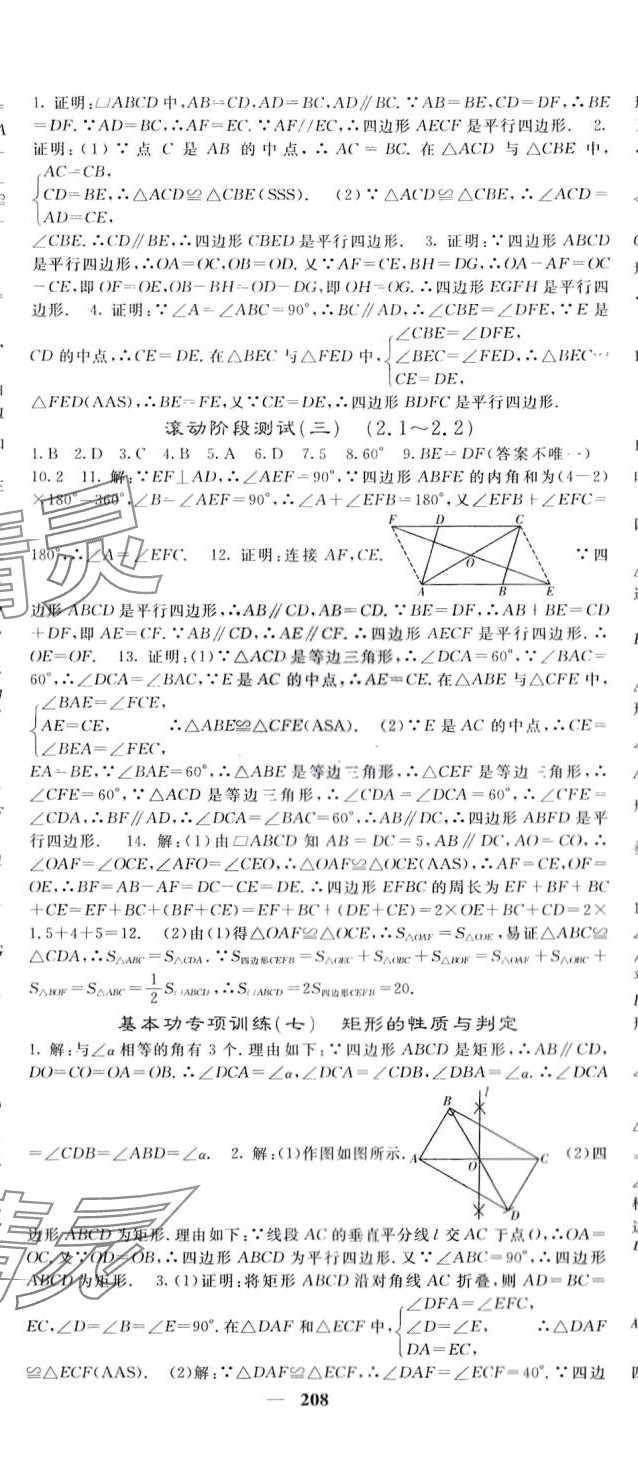 1. 证明:▱ABCD中,AB=CD,AD=BC,AD∥BC.∵AB=BE,CD=DF,∴BE
=DF.∵AD=BC,∴AF=EC.∵AF//EC,∴四边形AECF是平行四边形. 2.
证明:(1)∵点C是AB的中点,∴AC=BC.在△ACD与△CBE中,
AC=CB,
CD=BE,∴△ACD≌△CBE(SSS). (2)∵△ACD≌△CBE,∴∠ACD=
AD=CE,
∠CBE.∴CD∥BE,∴四边形CBED是平行四边形. 3. 证明:∵四边形ABCD
是平行四边形,∴OA=OC,OB=OD.又∵AF=CE,BH=DG,∴OA-AF=OC
-CE,即OF=OE,OB-BH=OD-DG,即OH=OG.∴四边形EGFH是平行四
边形. 4. 证明:∵∠A=∠ABC=90°,∴BC∥AD,∴∠CBE=∠DFE,∵E是
∠CBE=∠DFE,
CD的中点,∴CE=DE.在△BEC与△FED中,∠BEC=∠FED,∴△BEC≌
CE=DE,
△FED(AAS),∴BE=FE,又∵CE=DE,∴四边形BDFC是平行四边形.
滚动阶段测试(三) (2.1~2.2)
1.B 2.D 3.C 4.B 5.A 6.D 7.5 8.60° 9.BE=DF(答案不唯一)
10.2 11. 解:∵EF⊥AD,∴∠AEF=90°,∵四边形ABFE的内角和为(4-2)
×180°=360°,∠B=∠AEF=90°,∴∠A+∠EFB=180°,又∠EFB+∠EFC=
F D C
180°,∴∠A=∠EFC. 12. 证明:连接AF,CE. O ∵四
A B E
边形ABCD是平行四边形,∴AB∥CD,AB=CD.∵BE=DF,∴AB+BE=CD
+DF,即AE=CF.∵AB∥CD,∴AE∥CF.∴四边形AECF是平行四边形.∴
OE=OF. 13. 证明:(1)∵△ACD是等边三角形,∴∠DCA=60°,∵∠BAC=
60°,∴∠DCA=∠BAC,∵E是AC的中点,∴AE=CE.在△ABE与△CFE中,
∠BAE=∠FCE,
AE=CE, ∴△ABE≌△CFE(ASA). (2)∵E是AC的中点,∴CE=
∠BEA=∠FEC,
EA=BE,∵∠BAE=60°,∴△ABE是等边三角形,∴△CEF是等边三角形,∴
∠CFE=60°,∵△ACD是等边三角形,∴∠CDA=∠DCA=60°,∴∠CFE=
∠CDA,∴BF∥AD,∴∠DCA=∠BAC=60°,∴AB∥DC,∴四边形ABFD是平
行四边形. 14. 解:(1)由▱ABCD知AB=DC=5,AB∥DC,AO=CO,∴
∠OAF=∠OCE,∠AFO=∠CEO,∴△OAF≌△OCE(AAS),∴AF=CE,OF=
OE,∴BF=AB-AF=DC-CE=DE.∴四边形EFBC的周长为EF+BF+BC
+CE=EF+BC+(BF+CE)=EF+BC+(DE+CE)=2×OE+BC+CD=2×
1.5+4+5=12. (2)由(1)得△OAF≌△OCE,∴S△OAF=S△COE,易证△ABC≌
△CDA,∴S△ABC=S△CDA,∵S四边形CEFB=S△OEC+S△OBC+S△BOF=S△OAF+S△OBC+
S△BOF=S△ABC=1/2S▱ABCD,∴S▱ABCD=2S四边形CEFB=20.
基本功专项训练(七) 矩形的性质与判定
1. 解:与∠α相等的角有3个.理由如下:∵四边形ABCD是矩形,∴AB∥CD,
DO=CO=OA=OB.∴∠DCA=∠α,∠DCA=∠CDB,∠DBA=∠α.∴∠DCA
B l
=∠CDB=∠ABD=∠α. 2. 解:(1)作图如图所示. A O C (2)四
D
边形ABCD为矩形.理由如下:∵线段AC的垂直平分线l交AC于点O,∴OA=
OC.又∵OD=OB,∴四边形ABCD为平行四边形.又∵∠ABC=90°,∴四边形
ABCD为矩形. 3.(1)证明:将矩形ABCD沿对角线AC折叠,则AD=BC=
∠DFA=∠EFC,
EC,∠D=∠B=∠E=90°.在△DAF和△ECF中,∠D=∠E, ∴△DAF
DA=EC,
≌△ECF(AAS). (2)解:∵△DAF≌△ECF,∴∠DAF=∠ECF=40°.∵四边
— 208